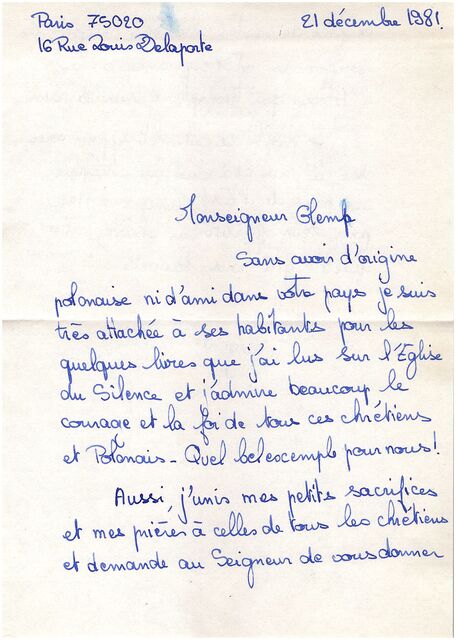 Paris 75020
21 décembre 1981.
16 Rue Louis Delaporte
Monseigneur Glemp
Sans avoir d'origine
polonaise ni d'ami dans votre pays je suis
très attachée à ses habitants pour les
quelques livres que j'ai lus sur l'Eglise
du Silence et j'admire beaucoup le
courage et la foi de tous ces chrétiens
et Polonais - Quel bel exemple pour nous!
Aussi, j'unis mes petits sacrifices
et mes prières à celles de tous les chrétiens
et demande au Seigneur de vous donner